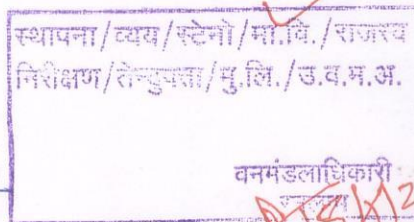 स्थापना/व्यय/स्टेनो/मा.वि./राजस्व
निरीक्षण/तेन्दुपत्ता/मु.लि./उ.व.म.अ.
वनमंडलाधिकारी